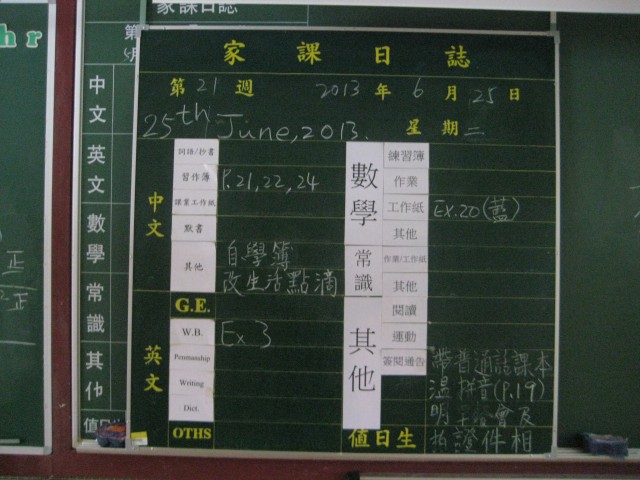 hr
家課日誌
第
中文
英文
數學
常識
其他
值日
正
正
家課日誌
第21週 2013年6月25日
25th June, 2013. 星期二
中文
詞語/抄書
習作簿 P.21,22,24
課堂工作紙
默書
其他 自學簿
改生活點滴
英文
G.E.
W.B. Ex 3
Penmanship
Writing
Dict.
OTHS
數學
練習簿
作業
工作紙 Ex.20(藍)
其他
常識
作業/工作紙
其他
其他
閱讀
運動
簽閱通告 帶普通話課本
溫拼音(P.19)
明主會及
拍證件相
值日生